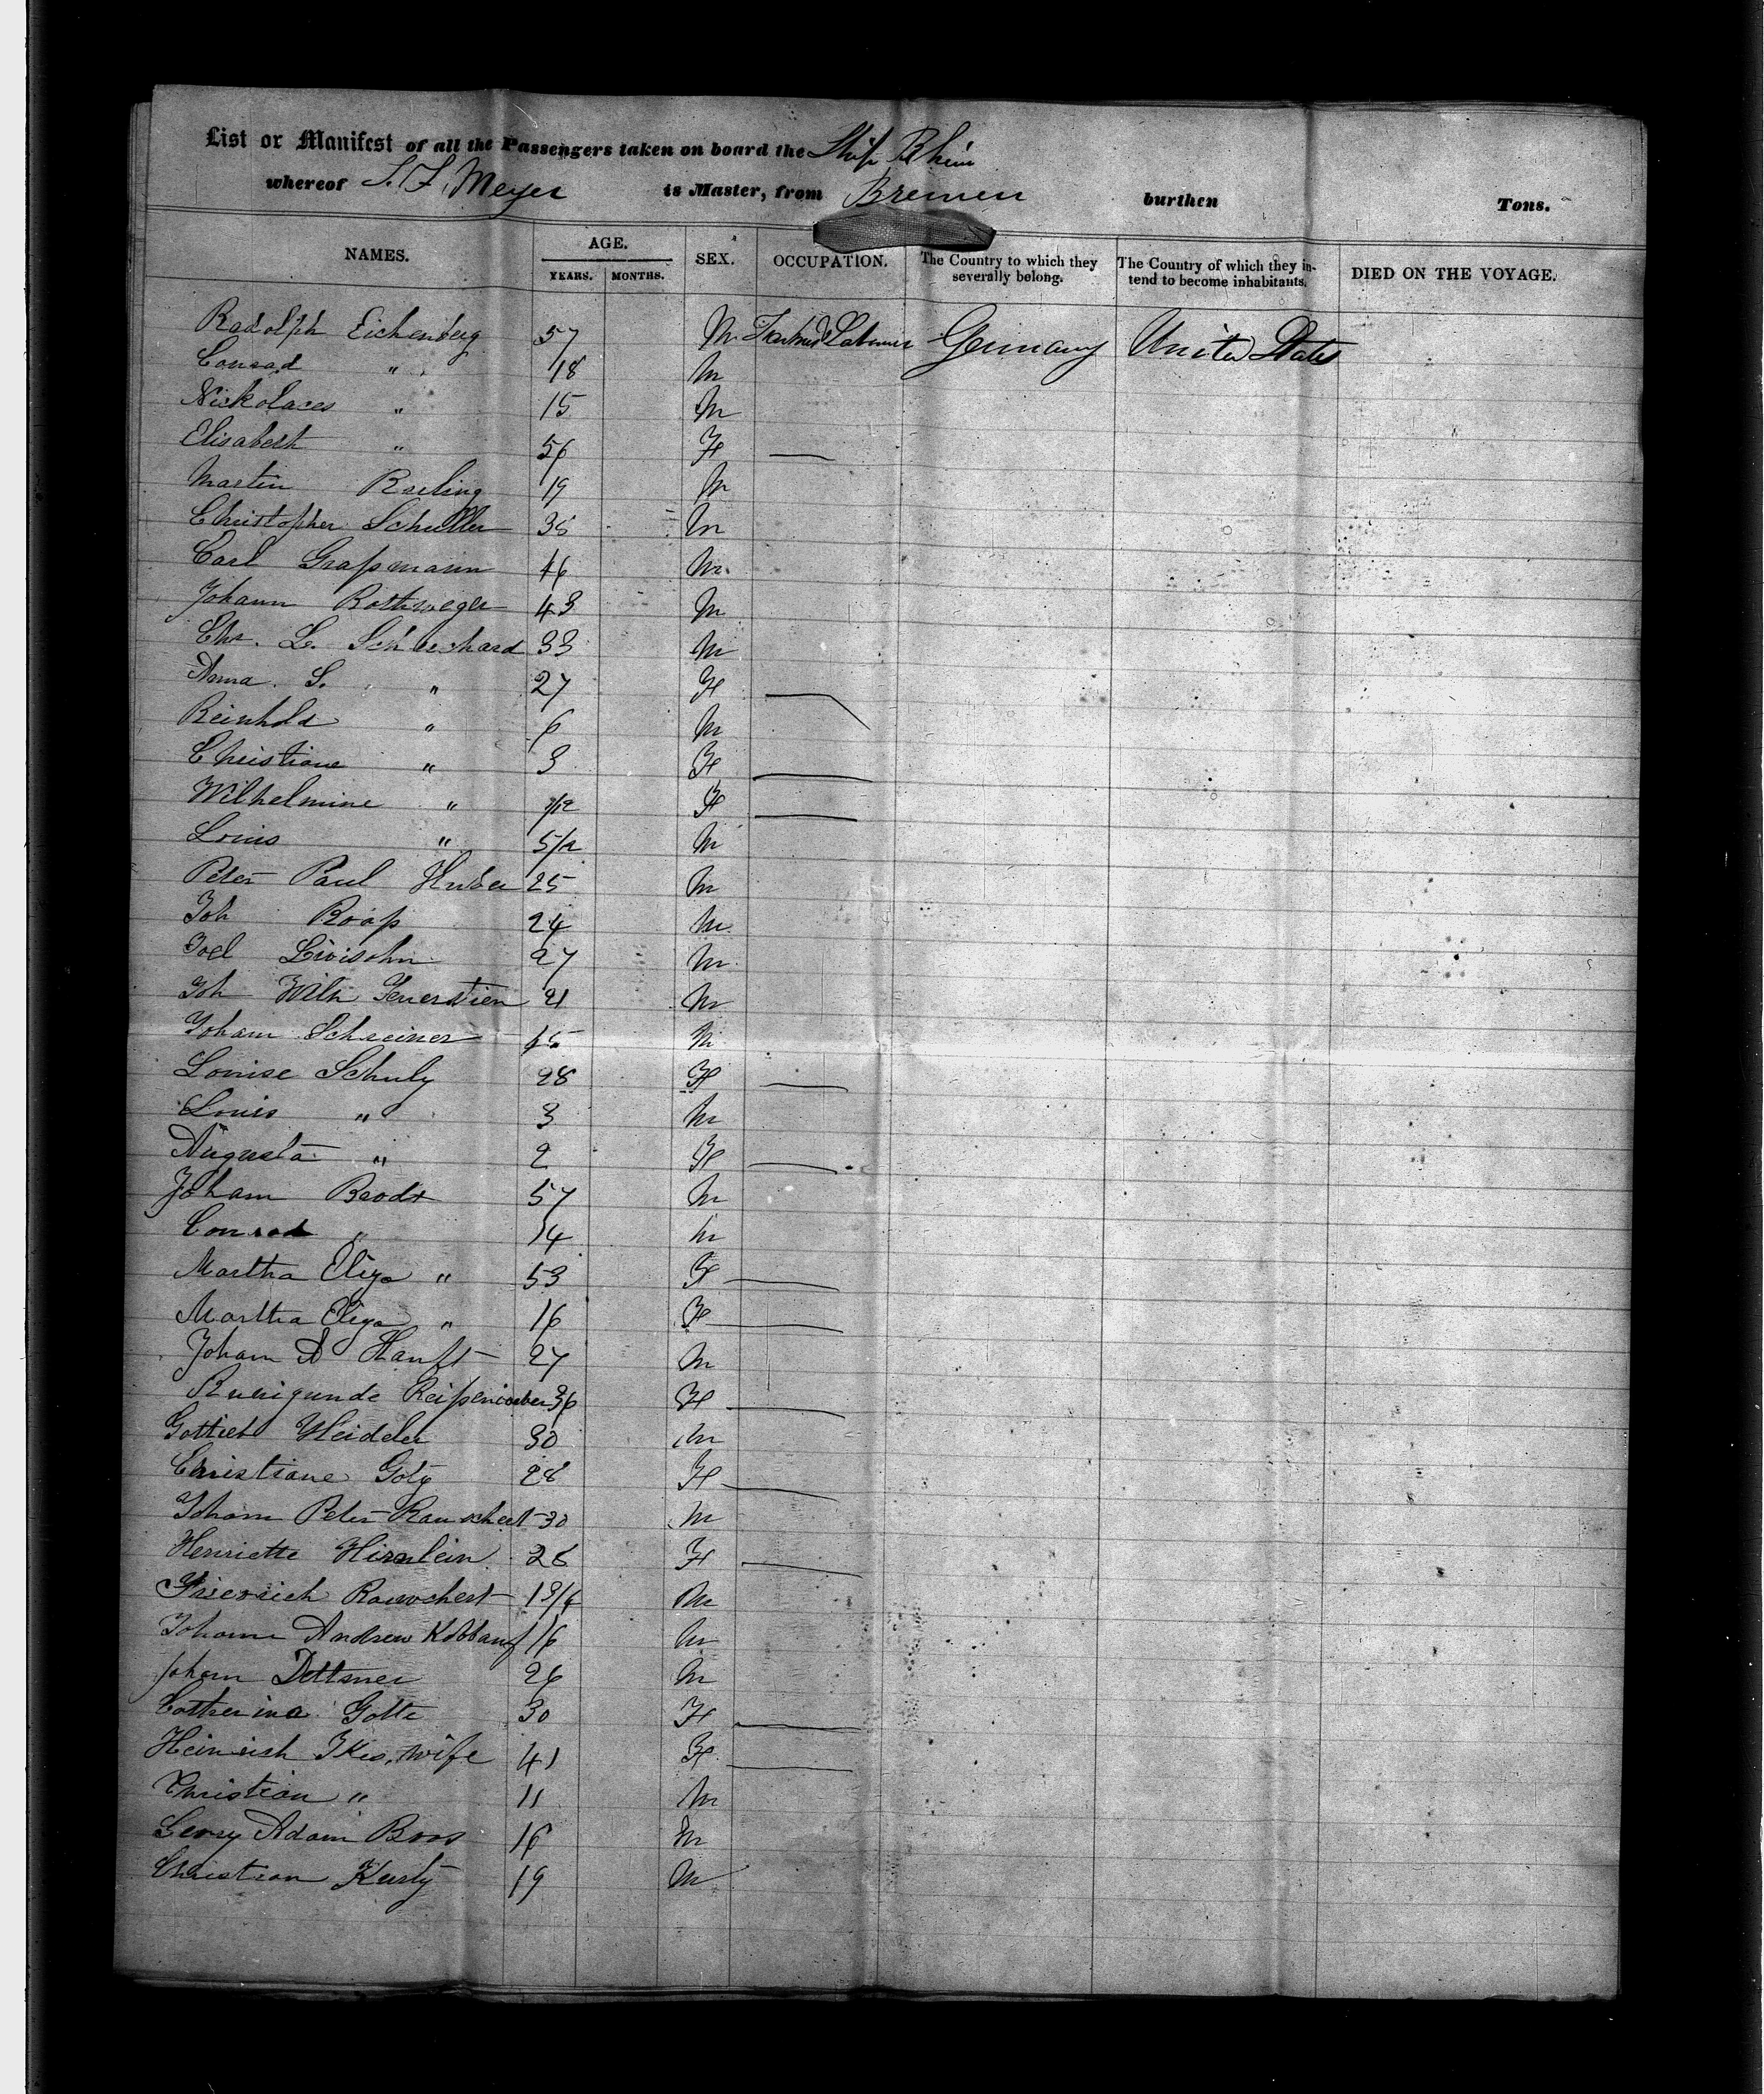 List or Manifest of all the Passengers taken on board the Ship Rhein
whereof Meyer is Master, from Bremen burthen Tons.
NAMES. AGE. SEX. OCCUPATION. The Country to which they severally belong. The Country of which they intend to become inhabitants. DIED ON THE VOYAGE.
YEARS. MONTHS.
Radolph Eichenberg 57 M Germany United States
Conrad " 18 M
Nickolaces " 15 M
Elisabeth " 56 F —
Martin 19 M
Christopher Schuller 35 M
Carl Graſsmann 46 M
Johann Rothweger 43 M
Chr. L. 33 M
Anna S. " 27 F —
Reinhold " 6 M
Christiane " 3 F —
Wilhelmine " F —
Louis " 5/12 M
Peter Paul Huber 25 M
Joh Roop 24 M
Joel Livisohn 27 M
Joh Wilh 21 M
Joham Schreiner 45 M
Louise Schulz 28 F —
Louis " 3 M
Augusta " 2 F —
Joham Brodt 57 M
Conrad " 14 M
Martha Eliza " 53 F —
Martha Eliza " 16 F —
Joham A Hanft 27 M
36 F —
Gottieb Heidder 30 M
Christiane Gotz 28 F —
Joham Peter Rauschert 30 M
Henriette Hirnlein 28 F —
Friedrich Rauschert M
Johann Andrew 16 M
Joham Dettmer 26 M
Catherina Gotte 30 F —
Heinrich Ikes, wife 41 F —
Christian " 11 M
Adam Boos 16 M
Christian Kurtz 19 M